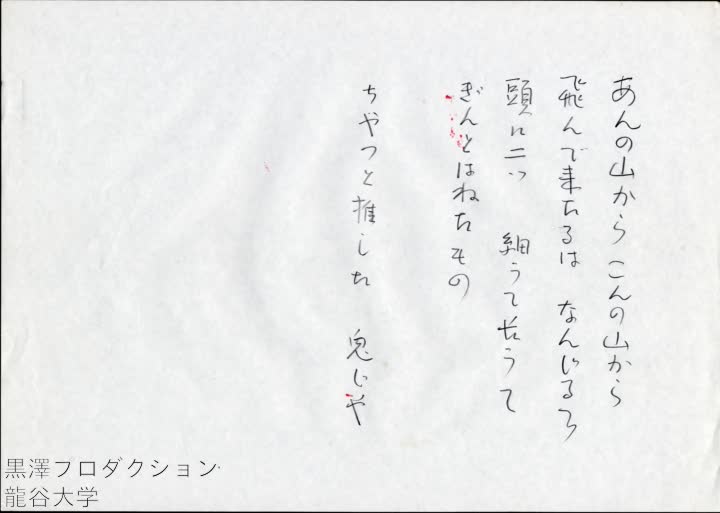 あんの山から こんの山から
飛んで来たるは なんじるろ
頭に二ッ 細うて長うて
ぎんとはねたもの
ちやつと推した 兎じや
黒澤プロダクション
龍谷大学